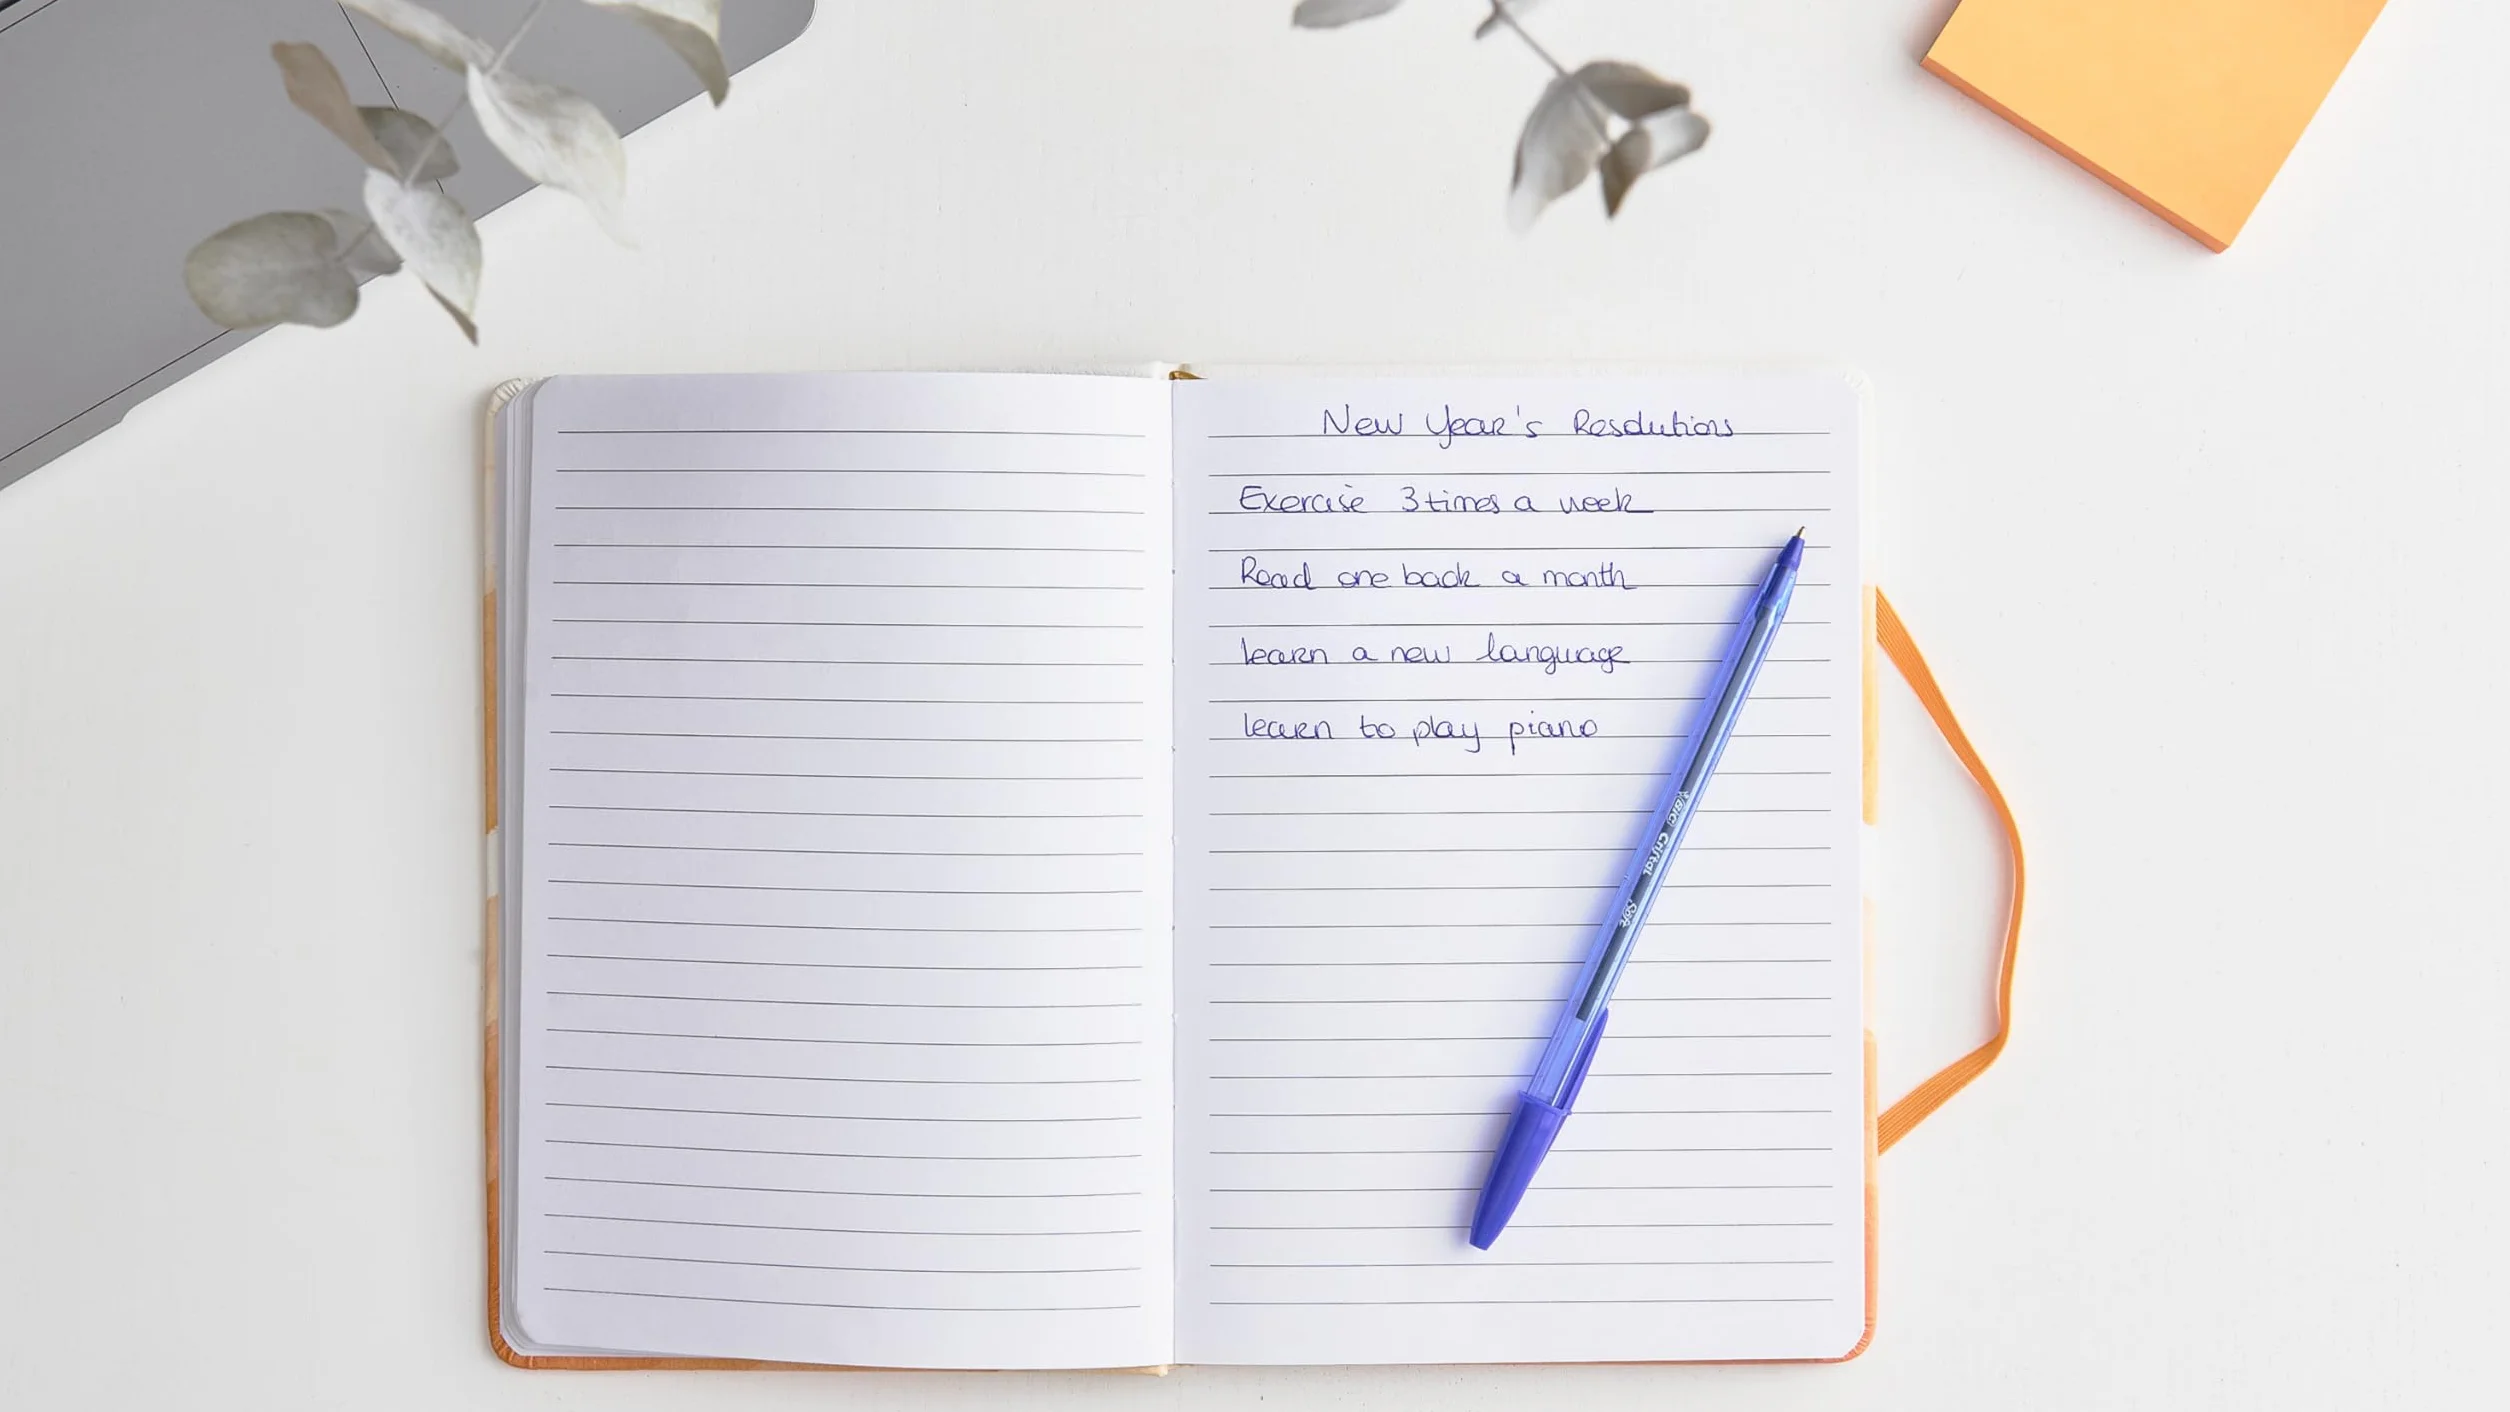 New Year's Resolutions
Exercise 3 times a week
Read one book a month
learn a new language
learn to play piano
BIC Cristal Soft